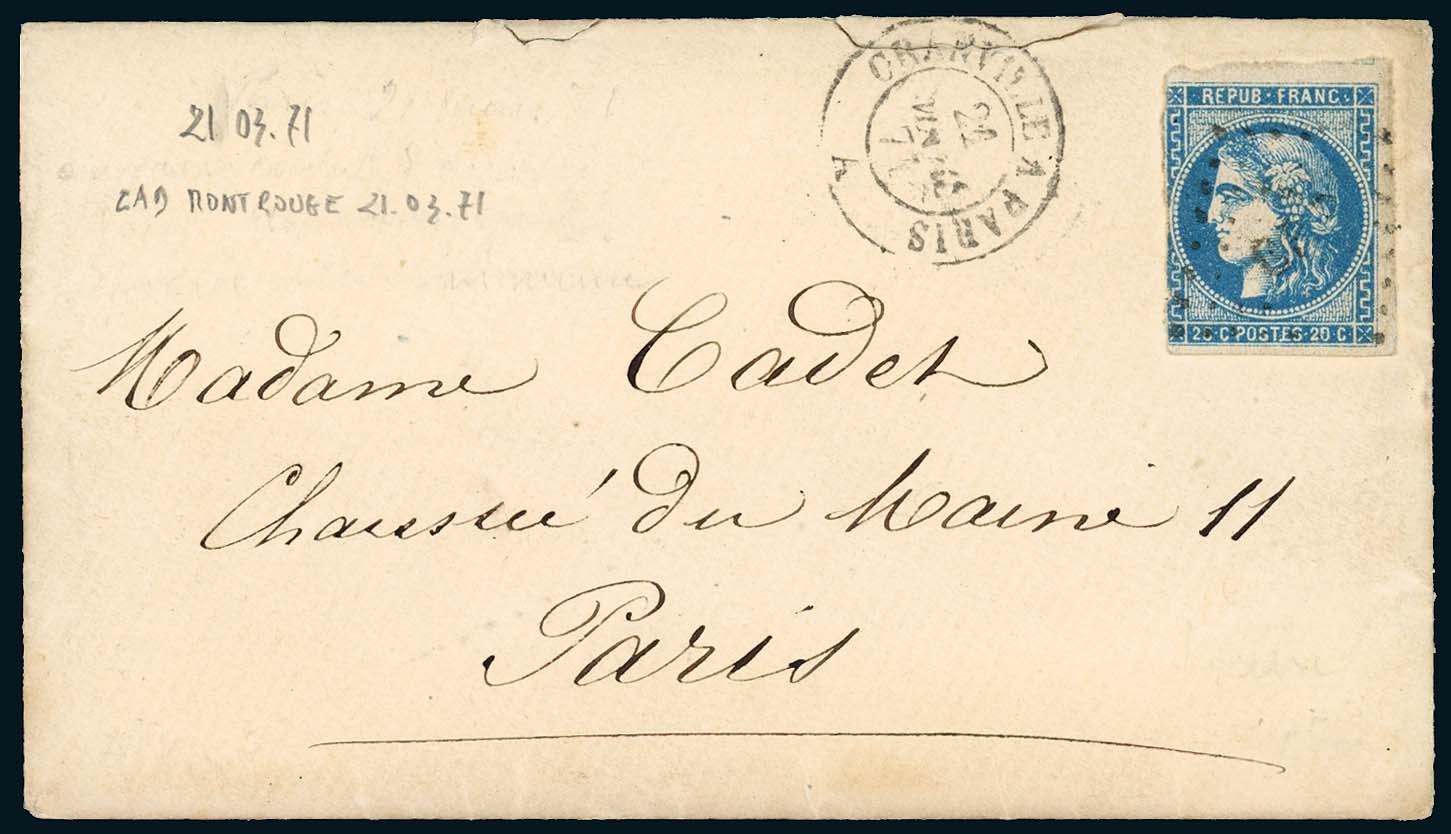 21 03.71
CAD MONTROUGE 21.03.71
GRANVILLE A PARIS
21
MARS
71
A
REPUB·FRANC.
20·C·POSTES·20·C
Madame Cadet
Chaussée du Maine 11
Paris